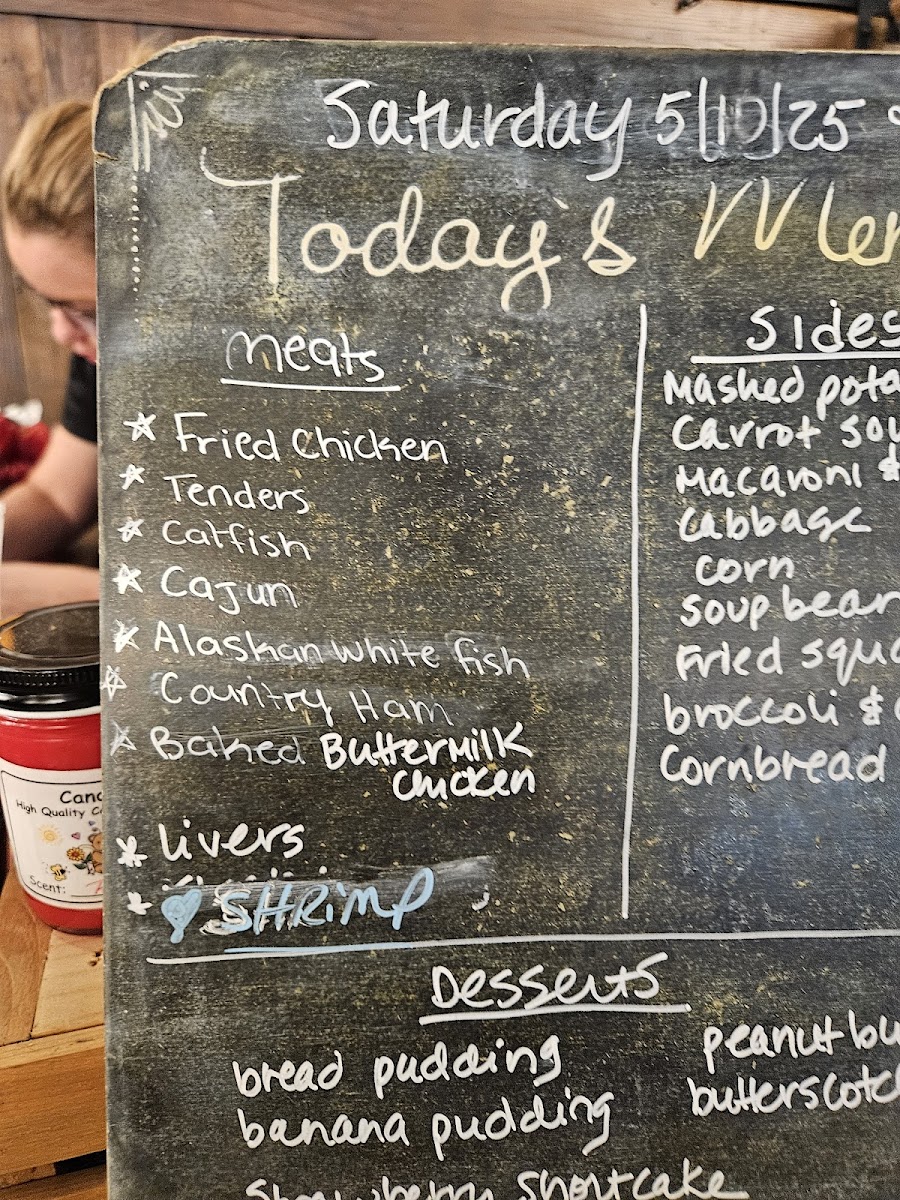 Saturday 5/10/25
Today's Men
Meats
Fried Chicken
Tenders
Catfish
Cajun
Alaskan White fish
Country Ham
Baked Buttermilk
Chicken
Livers
SHRimp
Sides
Mashed pota
Carrot sou
Macaroni &
Cabbage
Corn
Soup bean
Fried squa
broccoli &
Cornbread
Desserts
bread pudding
banana pudding
Strawberry shortcake
peanut bu
butterscotc
Canc
High Quality C
Scent: